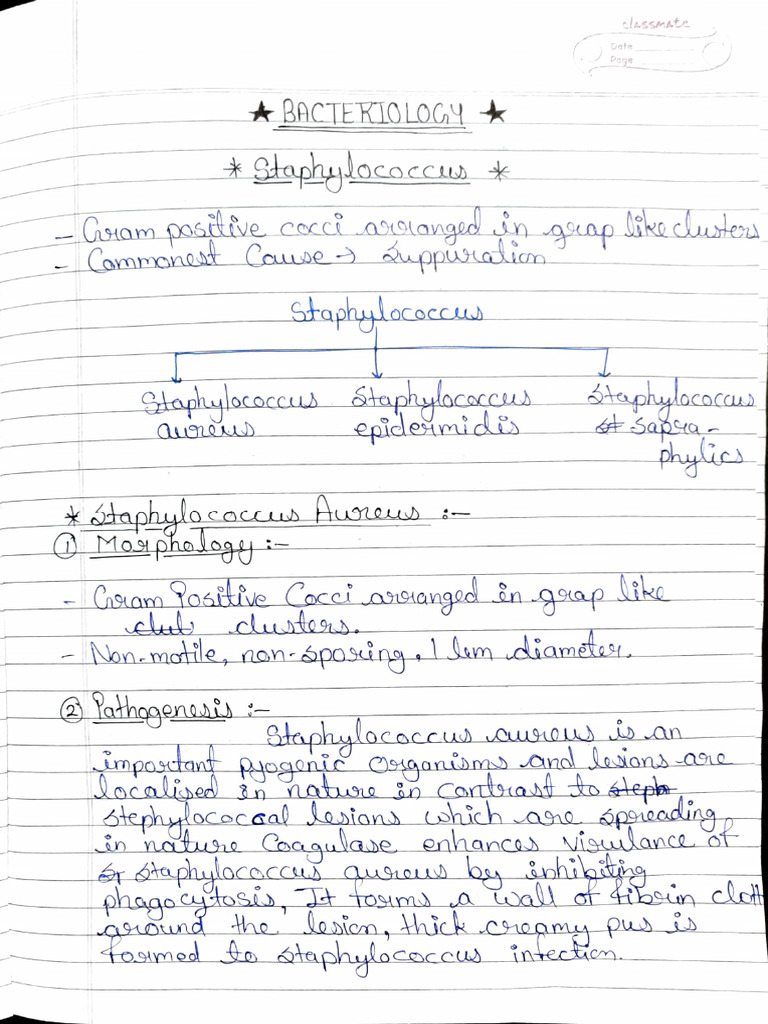 classmate
Date
Page
★ BACTERIOLOGY ★
* Staphylococcus *
- Gram positive cocci arranged in grap like clusters
- Commonest Cause → Suppuration
Staphylococcus
Staphylococcus aureus
Staphylococcus epidermidis
Staphylococcus sapra-phylics
* Staphylococcus Aureus :-
① Morphology :-
- Gram Positive Cocci arranged in grap like
clusters.
- Non-motile, non-sporing, 1 um diameter.
② Pathogenesis :-
Staphylococcus aureus is an
important pyogenic organisms and lesions are
localised in nature in contrast to
stephylococcal lesions which are spreading
in nature Coagulase enhances virulance of
Staphylococcus aureus by inhibiting
phagocytosis, It forms a wall of fibrin clott
around the lesion, thick creamy pus is
formed to Staphylococcus infection.